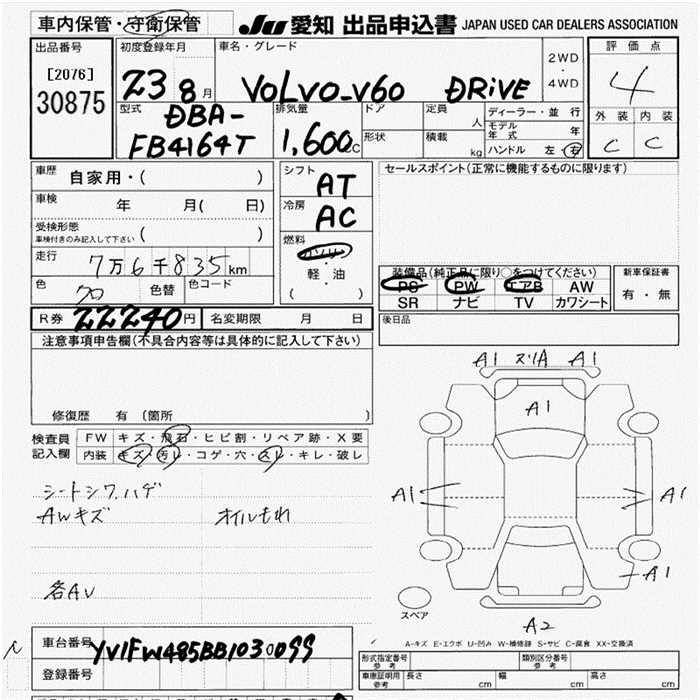 車内保管・守衛保管 JU 愛知 出品申込書 JAPAN USED CAR DEALERS ASSOCIATION
出品番号 初度登録年月 車名・グレード 評価点
[2076] 23 8月 VOLVO-V60 DRiVE 2WD・4WD 4
30875
型式 排気量 ドア 定員 人 ディーラー・並行 外装 内装
DBA- モデル年式 年 C C
FB4164T 1,600cc 形状 積載 kg ハンドル 左・右
車歴 自家用・( ) シフト AT セールスポイント(正常に機能するものに限ります)
車検 年 月( 日) 冷房 AC
受検形態 ( )
車検付きのみ記入して下さい
走行 7万6千835km 燃料 ガソリン・軽油 ( )
色 クロ 色替 色コード
装備品(純正品に限り○をつけてください) 新車保証書
PS PW エアB AW 有・無
SR ナビ TV カワシート
R券 22240円 名変期限 月 日 後日品
注意事項申告欄(不具合内容等は具体的に記入して下さい)
修復歴 有(箇所 )
検査員記入欄 FW キズ・飛石・ヒビ割・リペア跡・X要
内装 キズ・汚レ・コゲ・穴・スレ・キレ・破レ
シートシワ、ハゲ
AWキズ オイルもれ
各AU
A1 スリA A1
A1
A1 A1
A1
スペア
A2
A-キズ E-エクボ U-凹み W-補修跡 S-サビ C-腐食 XX-交換済
車台番号 YV1FW485BB1030099
登録番号
形式指定番号 参考 類別区分番号 参考
車庫証明用 参考 長さ cm 幅 cm 高さ cm